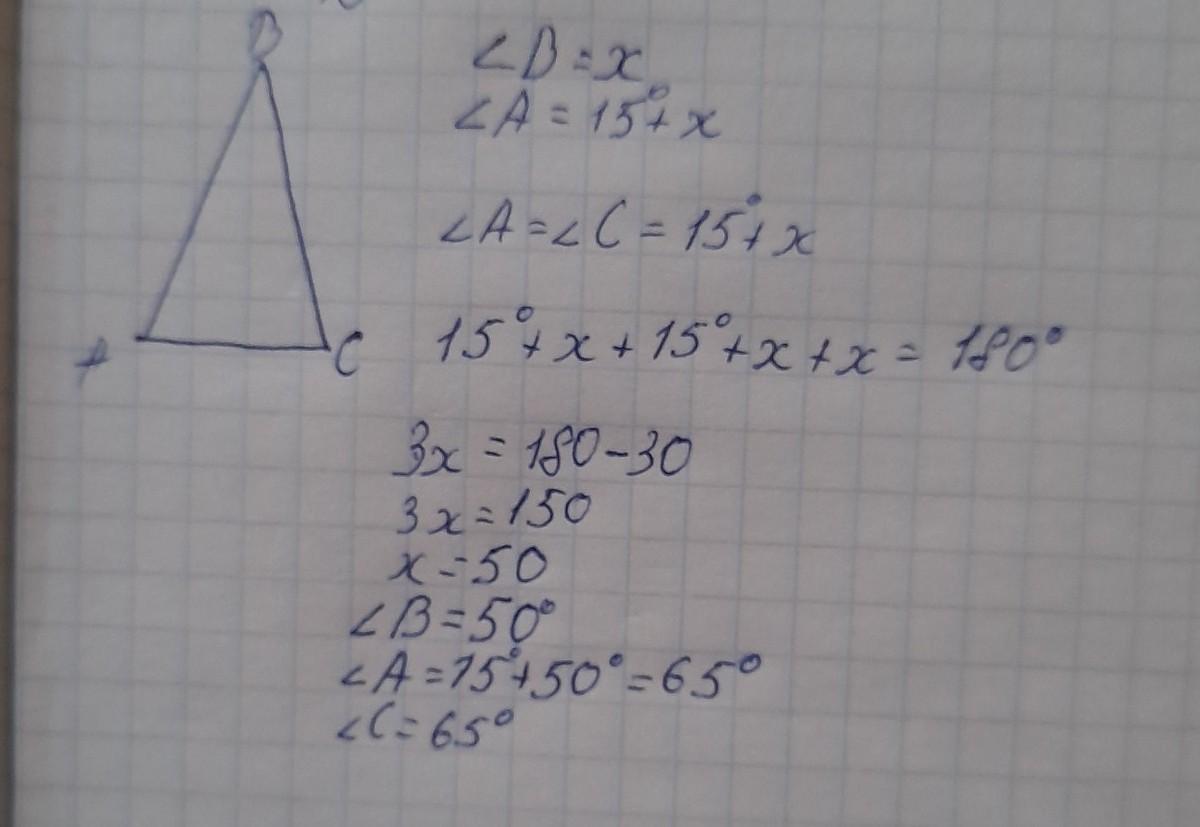 B
∠B = x
∠A = 15°+ x
∠A = ∠C = 15°+ x
A
C
15°+ x + 15°+ x + x = 180°
3x = 180 - 30
3x = 150
x = 50
∠B = 50°
∠A = 15°+50° = 65°
∠C = 65°